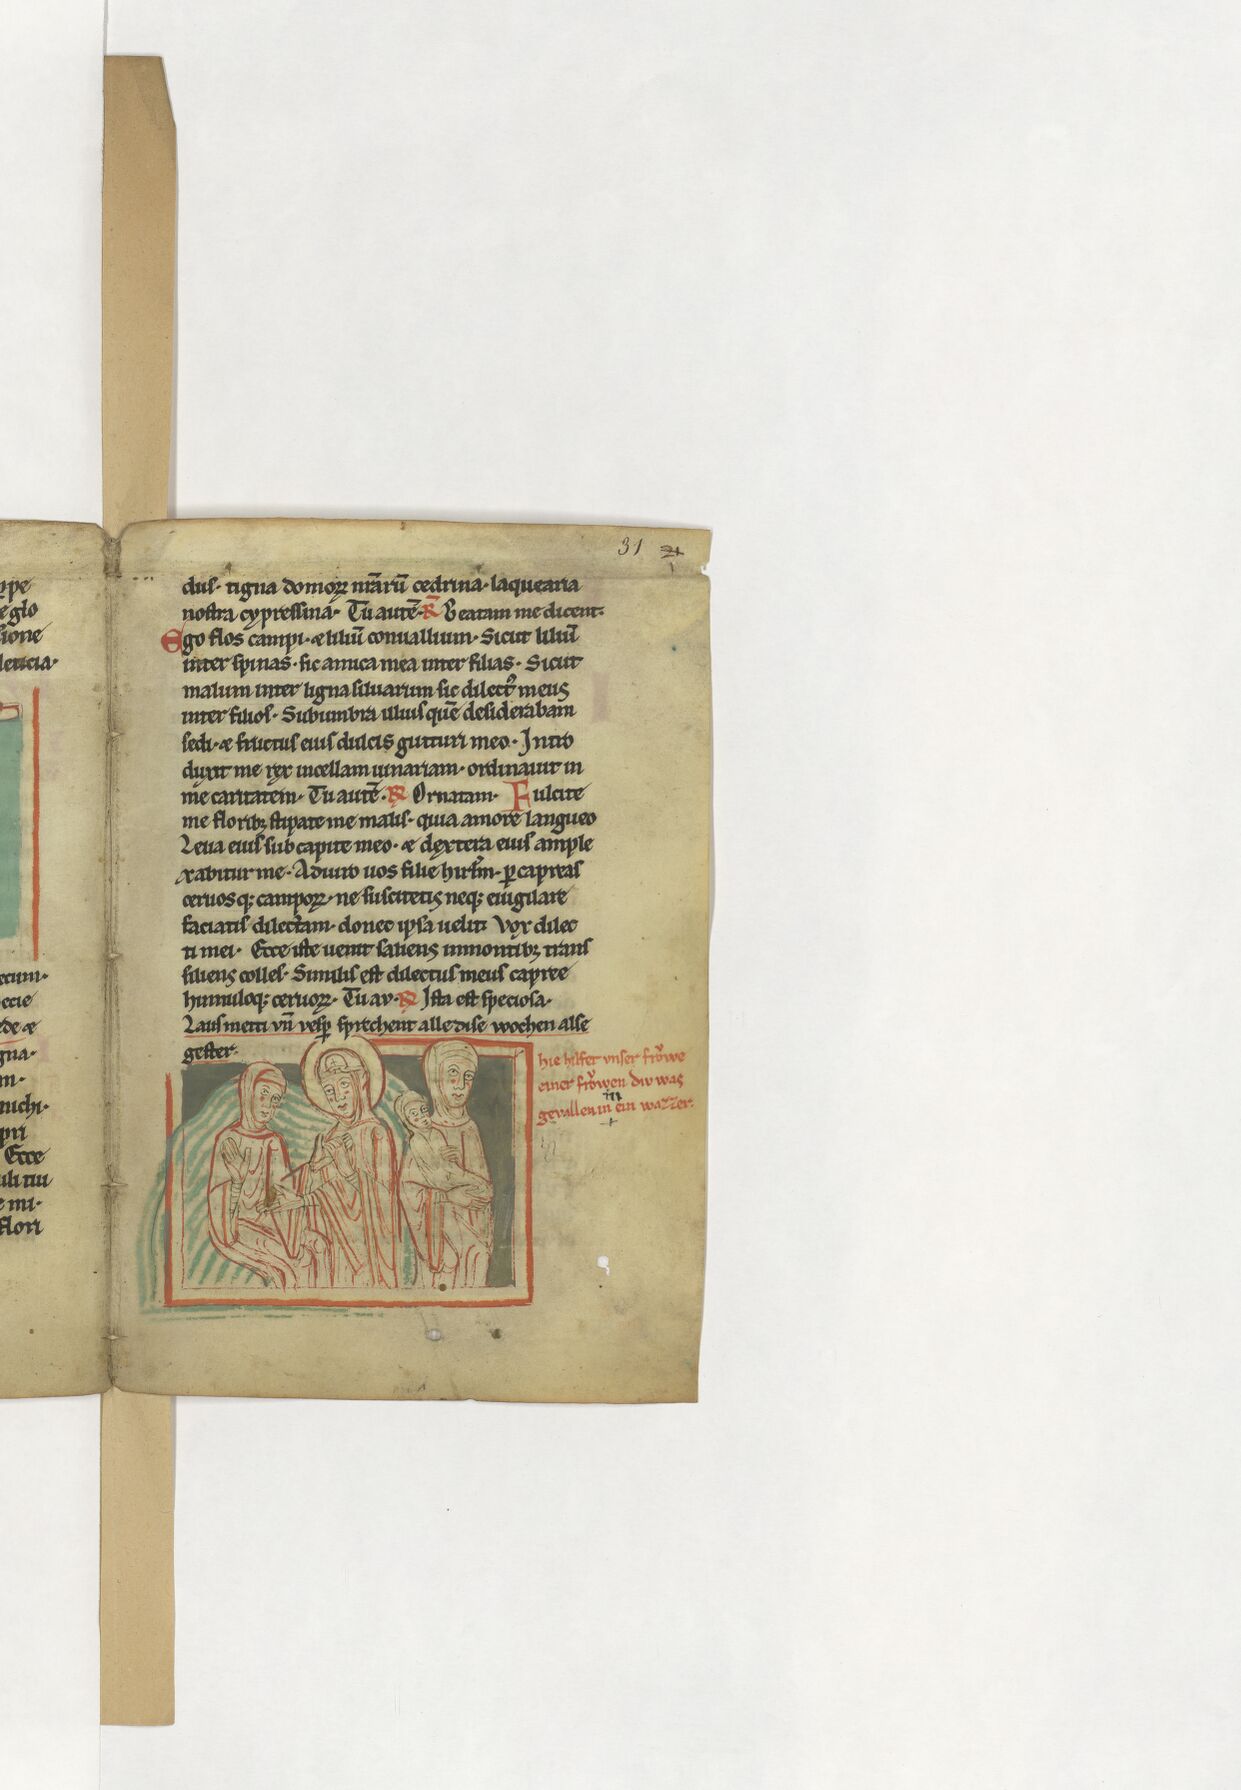 31
dus· tigna domorꝝ nr̄arū cedrina· laquearia
nostra cypressina· Tu autē· ℟ Beatam me dicent·
Ego flos campi· & liliū conuallium· Sicut liliū
inter spinas· sic amica mea inter filias· Sicut
malum inter ligna siluarum sic dilect᷒ meus
inter filios· Sub umbra illius quē desiderabam
sedi· & fructus eius dulcis gutturi meo· Intro
duxit me rex in cellam uinariam· ordinauit in
me caritatem· Tu autē· ℟ Ornatam· Fulcite
me floribꝫ stipate me malis· quia amore langueo
Leua eius sub capite meo· & dextera eius ample
xabitur me· Adiuro uos filie hirl̄m· ꝑ capreas
ceruosqꝫ camporꝝ· ne suscitetis neqꝫ euigilare
faciatis dilectam· donec ipsa uelit· Vox dilec
ti mei· Ecce iste uenit saliens in montibꝫ trans
siliens colles· Similis est dilectus meus capree
hinnuloqꝫ ceruorꝝ· Tu au· ℟ Ista est speciosa·
Laus metti vn̄ vesp̄ sprechent alle dise wochen alse
gester·
hie hilfet vnser frowe
einer frowen div was
gevallen in ein wazzer·
ppe
e glo
sione
lencia·
ctum·
ecie
ede &
gna·
m·
michi·
pri
Ecce
uli tui
e mi·
flori